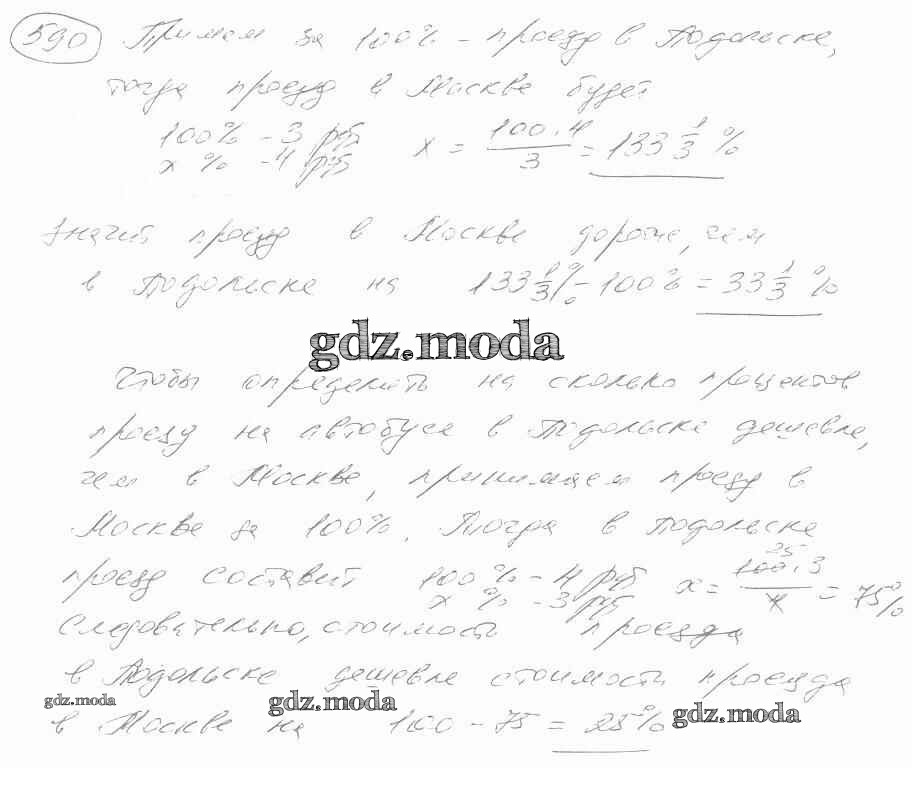 590 Примем за 100% - проезд в Подольске,
тогда проезд в Москве будет
100% - 3 руб
x % - 4 руб x = 100 · 4 / 3 = 133 1/3 %
Значит проезд в Москве дороже, чем
в Подольске на 133 1/3 % - 100% = 33 1/3 %
gdz.moda
Чтобы определить на сколько процентов
проезд на автобусе в Подольске дешевле,
чем в Москве, принимаем проезд в
Москве за 100%. Тогда в Подольске
проезд составит 100% - 4 руб
x % - 3 руб x = 100 · 3 / 4 = 75%
25
Следовательно, стоимость проезда
в Подольске дешевле стоимости проезда
gdz.moda gdz.moda gdz.moda
в Москве на 100 - 75 = 25%